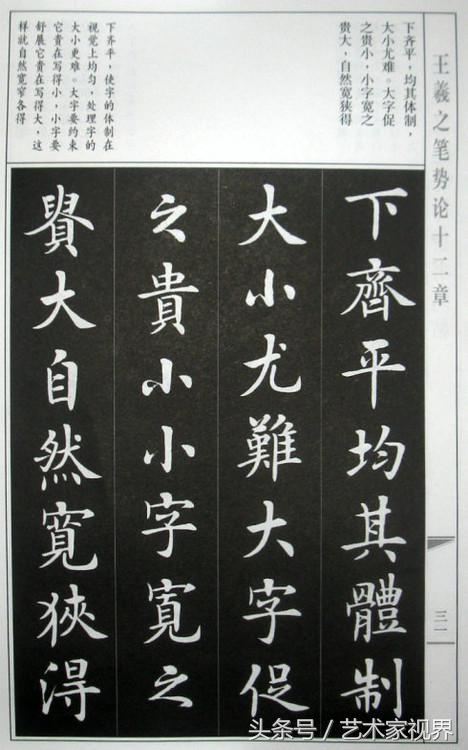 王羲之笔势论十二章
三一
下齐平，均其体制，
大小尤难。大字促
之贵小，小字宽之
贵大，自然宽狭得
下齐平，使字的体制在
视觉上均匀，处理字的
大小更难。大字要约束
它贵在写得小，小字要
舒展它贵在写得大，这
样就自然宽窄各得
下齊平均其體制
大小尤難大字促
之貴小小字寬之
貴大自然寬狹得
头条号／艺术家视界